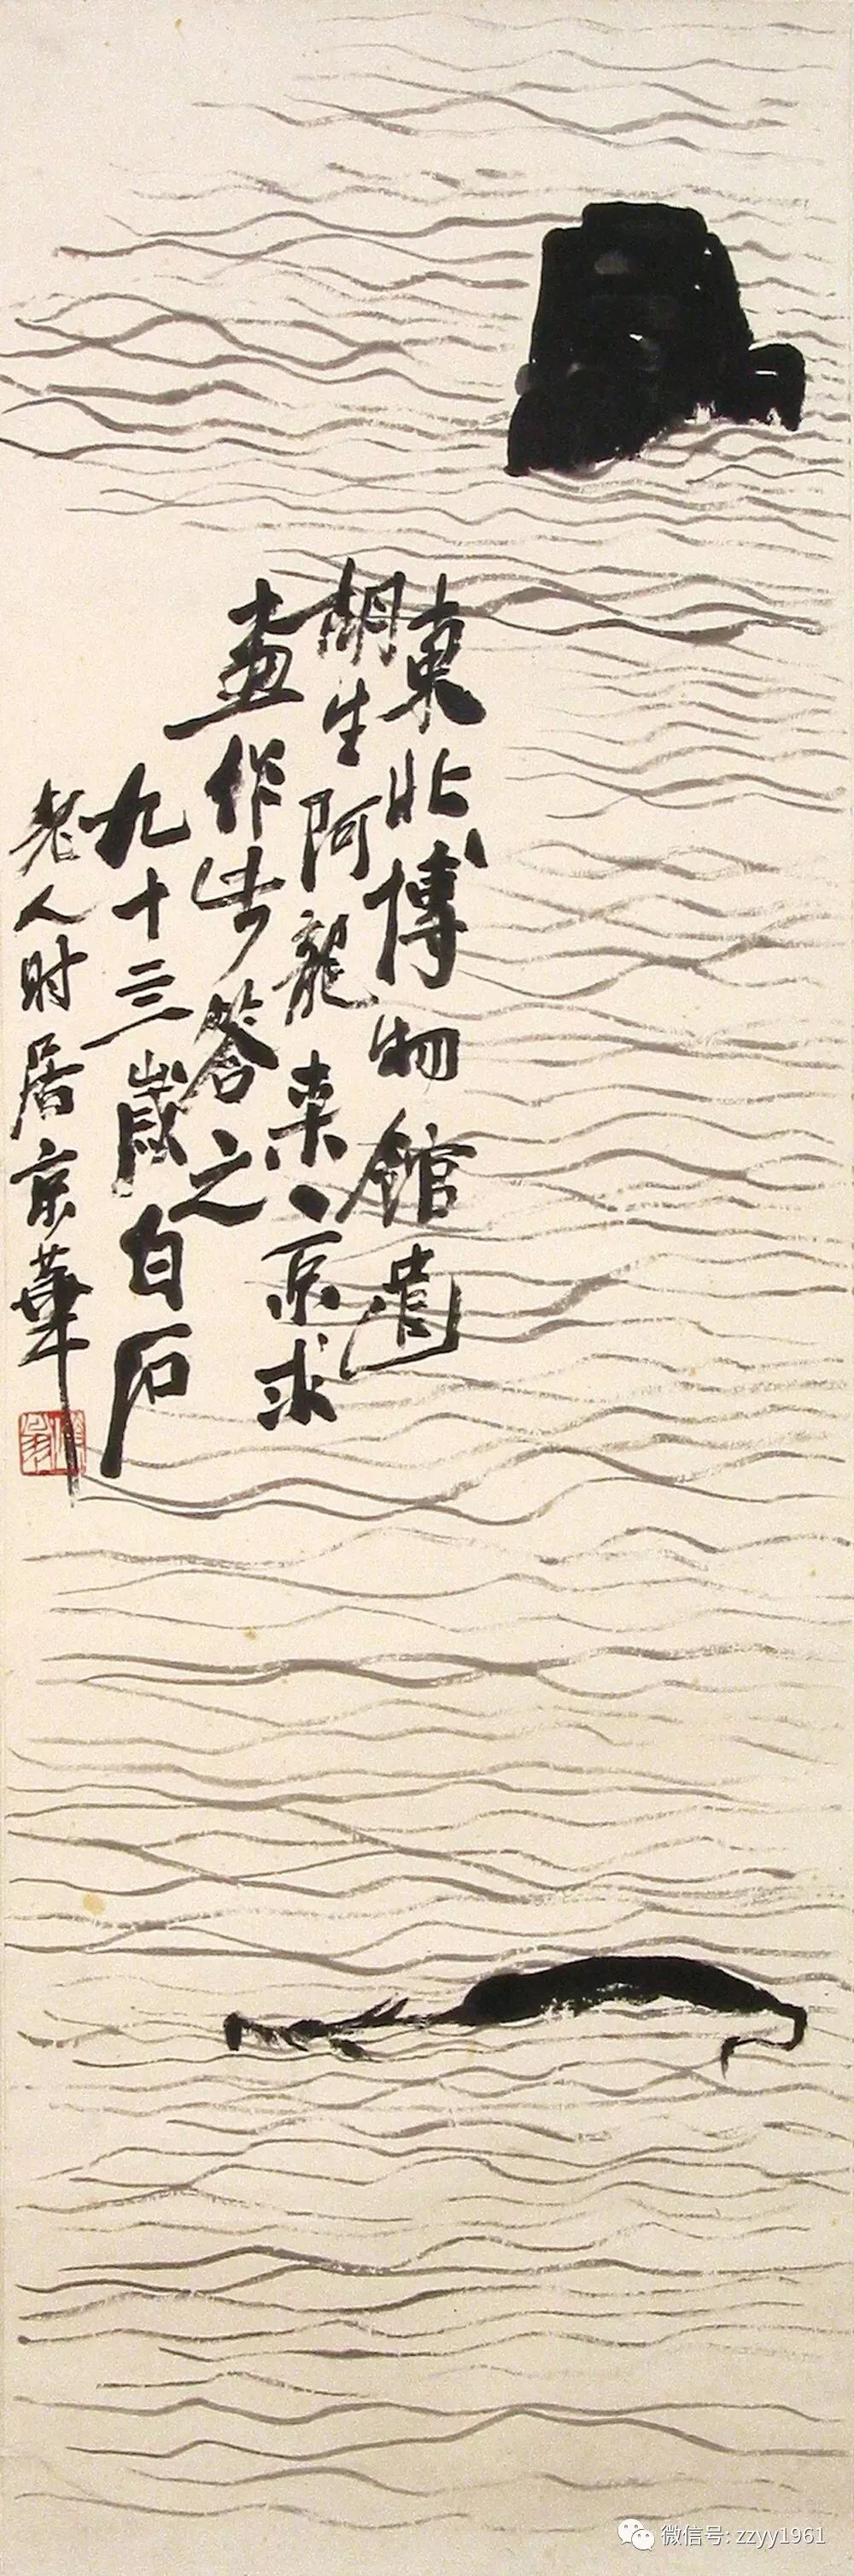 東北博物館遣
胡生阿龍来京求
畫作此答之
九十三歲白石
老人时居京華
微信号: zzyy1961